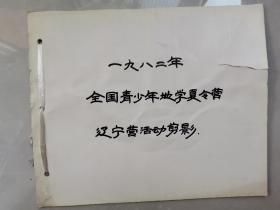 一九八二年
全国青少年地学夏令营
辽宁营活动剪影.